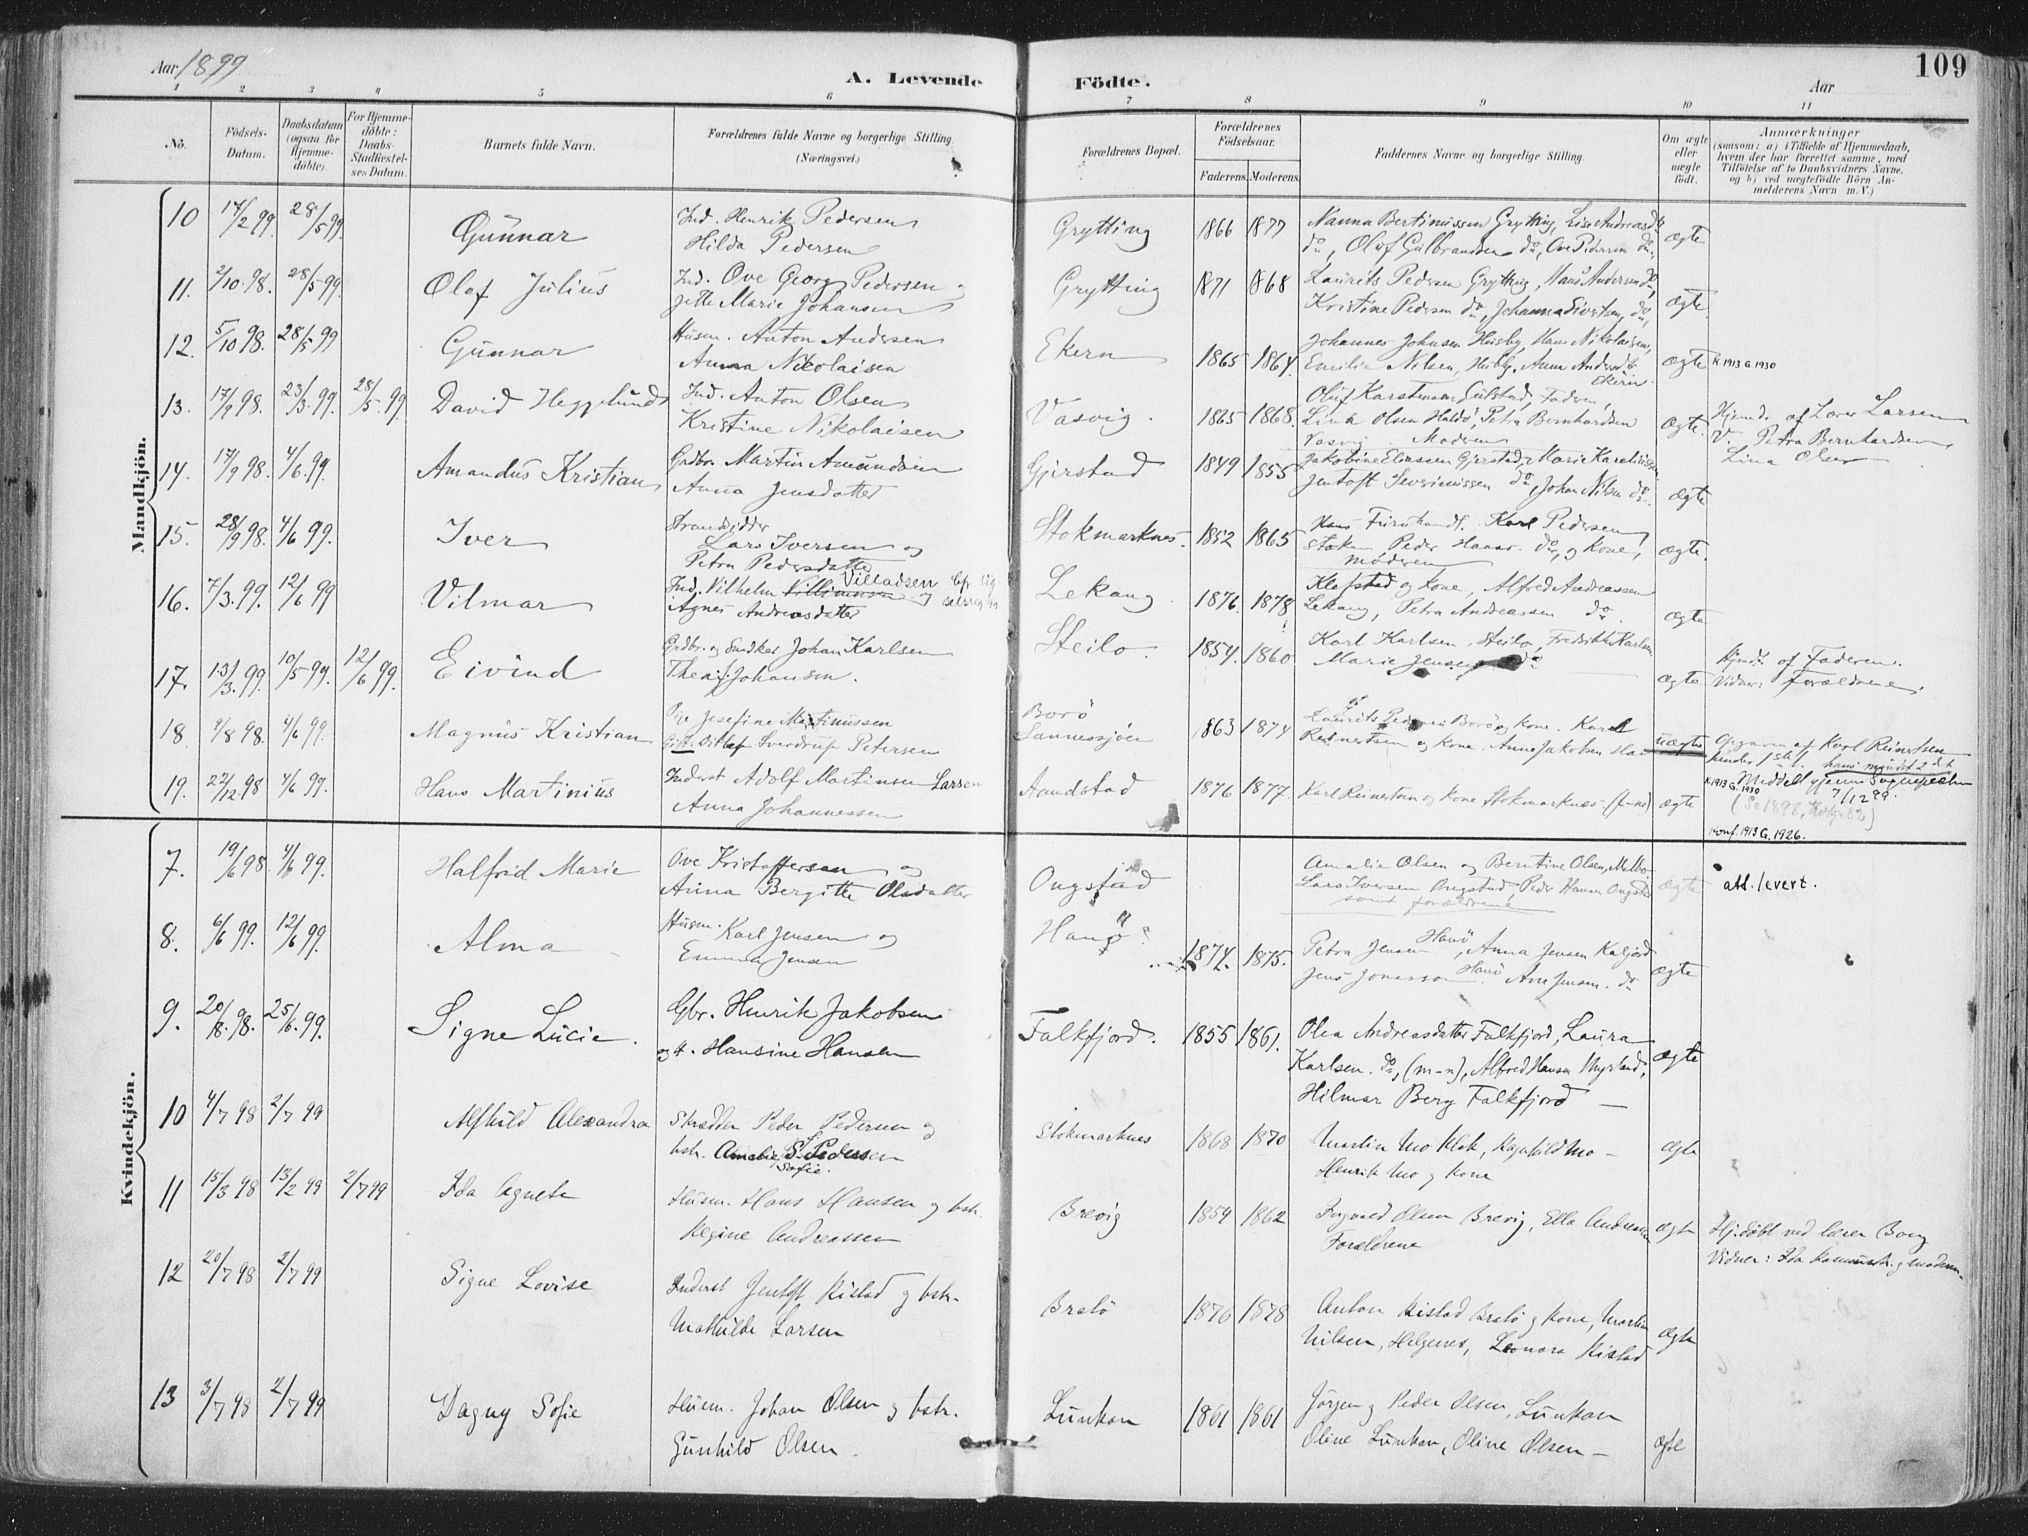 Aar 1899
A. Levende Födte.
Aar
109
1 2 3 4 5 6 7 8 9 10 11
No.
Födsels-Datum.
Daabsdatum (ogsaa for Hjemmedöbte).
For Hjemmedöbte: Daabs-Stadfæstelses Datum.
Barnets fulde Navn.
Forældrenes fulde Navne og borgerlige Stilling (Næringsvei.)
Forældrenes Bopæl.
Forældrenes Födselsaar.
Faderens. Moderens.
Faddernes Navne og borgerlige Stilling.
Om ægte eller uægte födt.
Anmærkninger
(saasom: a) i Tilfælde af Hjemmedaab, hvem der har forrettet samme, med Tilföielse af to Daabsvidners Navne. og b) ved uægtefödte Börn Anmelderens Navn m. V.)
Mandkjön.
10 17/2 99. 28/5 99. Gunnar Ind. Henrik Pedersen Grytting 1866 1877 Nanna Bertinussen Grytting, Lise Andreasd. do
Hilda Pedersen do, Olaf Gulbrandsen do, Ove Pedersen do. ægte
11. 2/10 98. 28/5 99. Olaf Julius Ind. Ove Georg Pedersen og Grytting 1871 1868 Laurits Pedersen Grytting, Hans Andersen do,
Jette Marie Johansen Kristine Pedersen do, Johanna Sivertsen, do, ægte
12. 5/10 98. 28/5 99 Gunnar Husm. Anton Andersen Ekern 1865 1864. Johannes Johnsen Husby, Hans Nikolaisen,
Anna Nikolaisen Emilie Nilsen, Husby, Anna Andersd. Ekern. ægte K 1913 G 1930
13. 17/9 98. 23/3 99. 28/5 99 David Heggelund Ind. Anton Olsen Vasvig. 1865 1868. Oluf Karstensen Gulstad, Fadren,
Kristine Nikolaisen Lina Olsen Haldö, Petra Bernhardsen ægte. Hjemd. af Lærer Larsen
Vasvig. Modren V. Petra Bernhardsen
Lina Olsen
14. 17/9 98. 4/6 99. Amandus Kristian Grdbr. Martin Amundsen Gjerstad 1849 1855 Jakobine Eliassen Gjerstad, Marie
Anna Jensdatter Jentoft Severinussen do, Johan Nilsen do. ægte
15. 28/9 98. 4/6 99. Iver Strandsidder Stokmarknes. 1852 1865 Karl Pedersen
Lars Iversen og Stokm, Peder Hanss. do, og Kone,
Petra Pedersdatter Moderen ægte.
16. 7/3 99. 12/6 99 Vilmar Ind. Vilhelm Villadsen og Lekang 1876. 1878 Klafstad og Kone, Alfred Andreassen
Agnes Andreasdatter Lekang, Petra Andreassen do. ægte
17. 13/3 99. 10/5 99. 12/6 99. Eivind Grdbr. og Snedker Johan Karlsen Steilo. 1854. 1860 Karl Karlsen, Steilo, Fredrikke Karlsen
Thea Johansen. Marie Jensen do ægte Hjmdt. af Faderen.
Vidner: Forældrene.
18 4/8 98. 4/6 99. Magnus Kristian Pige Josefine Martinussen Borö 1863 1874 Laurits Pedersen Borö og Kone. Karl
Gift. Ditlef Sverdrup Petersen Sannessjöen Reinertsen og Kone. Anne Jakobsen uægte Opgaven af Karl Reinertsen
19. 22/12 98 4/6 99. Hans Martinius Inderst Adolf Martinsen Larsen Aandstad 1876 1877. Karl Reinertsen og Kone Stokmarknes ægte K 1913 G. 1930
Anna Johannessen 7/12 99.
Konf. 1913 G. 1926.
Kvindekjön.
7. 19/6 98 4/6 99. Halfrid Marie Ove Kristoffersen og Ongstad Amalie Olsen og Berntine Olsen, Melbo
Anna Bergitte Olsdatter Lars Iversen Ongstad, Peder Hansen Ongstad samt forældrene ægte att. levert.
8. 6/6 99. 12/6 99. Alma Husm. Karl Jensen og Hanö 1874. 1875. Petra Jensen Hanö, Anna Jensen Kaljord
Emma Jensen Jens Jonasson Hanö. Ane Jensen. do ægte
9. 20/8. 98. 25/6 99. Signe Lucie. Gbr. Henrik Jakobsen Falkfjord. 1855 1861. Olea Andreasdatter Falkfjord, Laura
og H. Hansine Hansen Karlsen. do, (m-n), Alfred Hansen Myrland, ægte
Hilmar Berg Falkfjord
10 4/7 98 2/7 99 Alfhild Alexandra Skrædder Peder Pedersen og Stokmarknes 1868 1870 Martin Mo Klok, Ragnhild Mo
hstr. Amalie S. Pedersen Henrik Mo og Kone ægte
Sofie.
11 15/3 98 13/2 99 2/7 99 Ida Agnete Husm. Hans Hansen og hstr. Brevig 1859 1862 Ingvald Olsen Brevig, Ella Andreassen
Regine Andreassen Forældrene ægte Hj.döbt ved lærer Borg
Vidner: Ida Rasmussen og moderen
12 20/7 98 2/7 99 Signe Lovise Inderst Jentoft Kistad og hstr. Bratö 1876 1878 Anton Kistad Bratö og Kone, Martin
Mathilde Larsen Nilsen, Helgenes, Leonora Kistad ægte
13 3/7 98 2/7 99 Dagny Sofie Husm. Johan Olsen og hstr. Lunkan 1861 1861 Jörgen og Peder Olsen, Lunkan
Gunhild Olsen. Oline Lunkan, Oline Olsen ægte